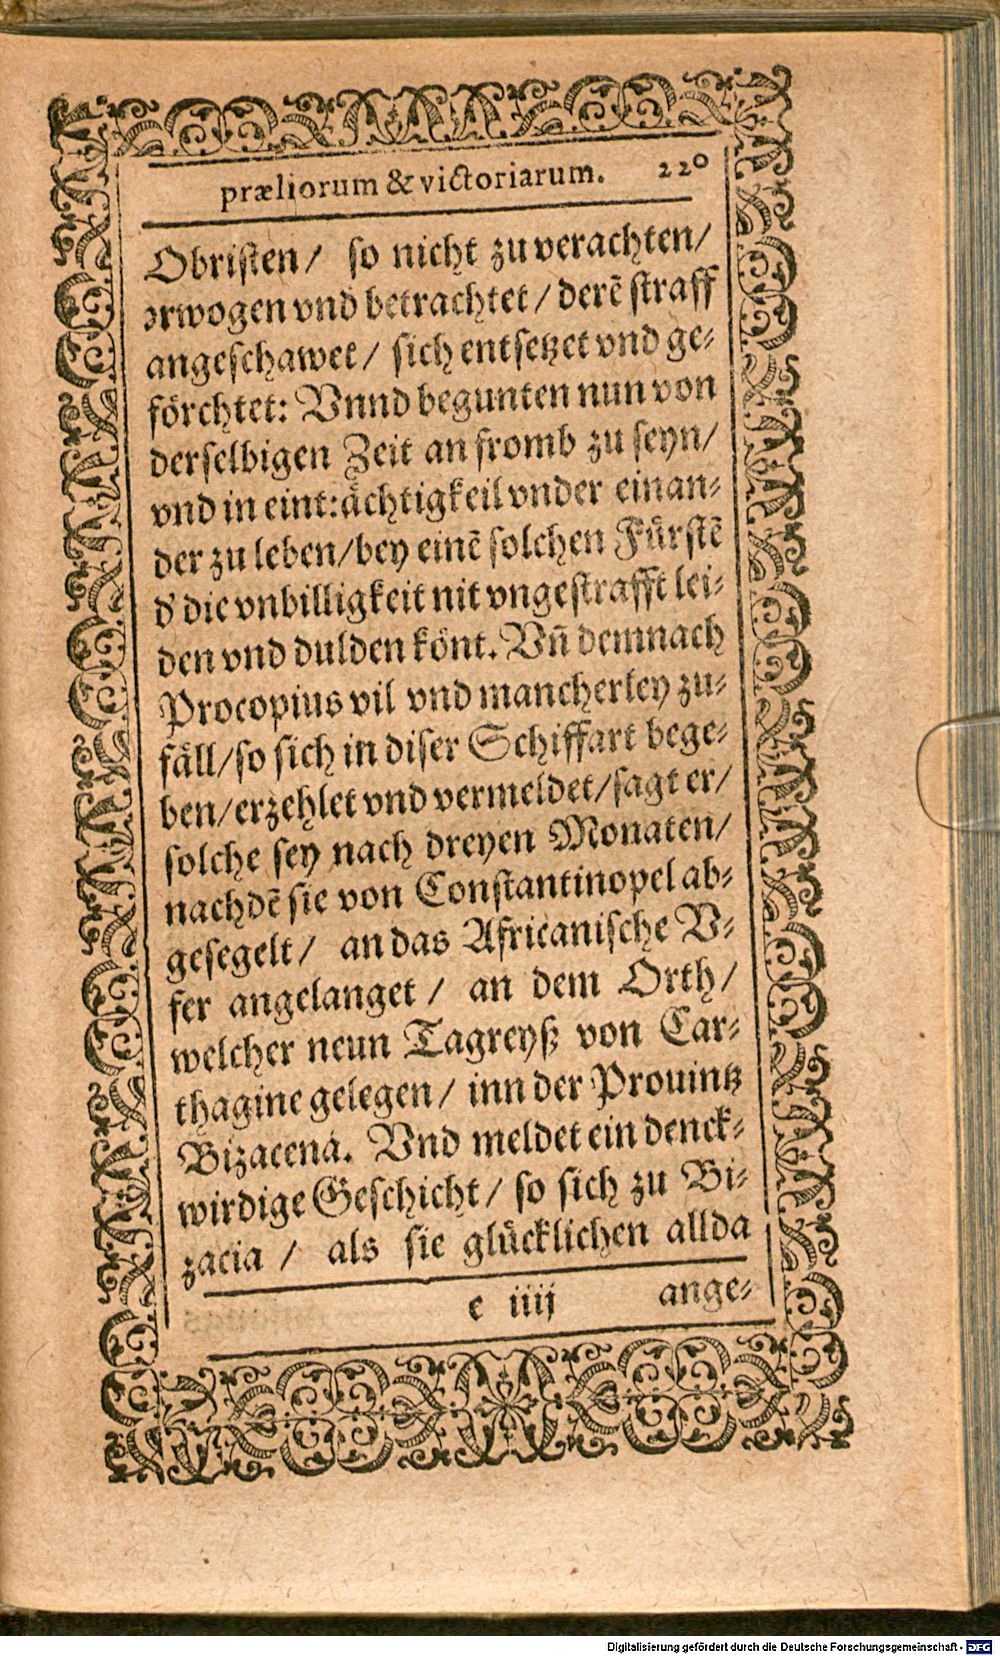 præliorum & victoriarum. 220
Obristen/ so nicht zu verachten/
erwogen vnd betrachtet/ derẽ straff
angeschawet/ sich entsetzet vnd ge-
förchtet: Vnnd begunten nun von
derselbigen Zeit an fromb zu seyn/
vnd in eint:ächtigkeil vnder einan-
der zu leben/bey einẽ solchen Fürstẽ
d' die vnbilligkeit nit vngestrafft lei-
den vnd dulden könt. Vñ demnach
Procopius vil vnd mancherley zu-
fäll/so sich in diser Schiffart bege-
ben/erzehlet vnd vermeldet/sagt er/
solche sey nach dreyen Monaten/
nachdẽ sie von Constantinopel ab-
gesegelt/ an das Africanische V-
fer angelanget / an dem Orth/
welcher neun Tagreyß von Car-
thagine gelegen/ inn der Prouintz
Bizacena. Vnd meldet ein denck-
wirdige Geschicht/ so sich zu Bi-
zacia / als sie glücklichen allda
e iiij ange-
Digitalisierung gefördert durch die Deutsche Forschungsgemeinschaft - DFG